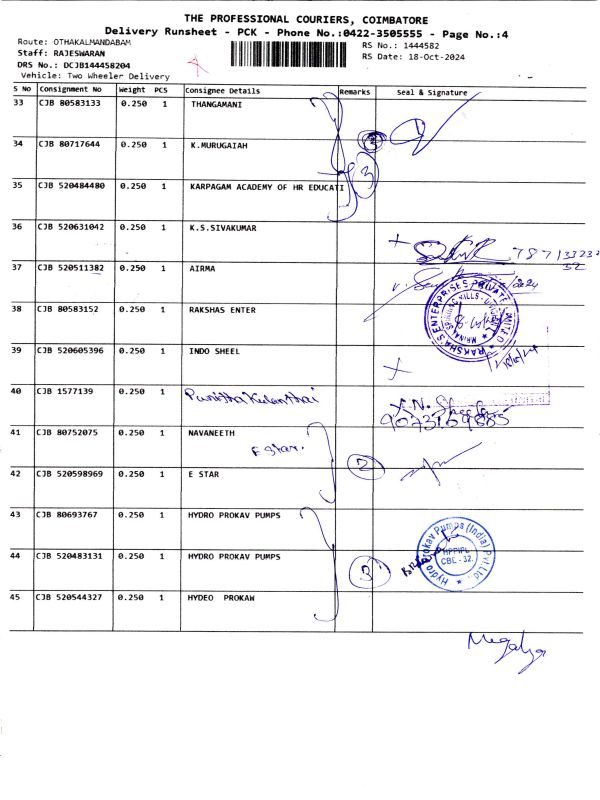 THE PROFESSIONAL COURIERS, COIMBATORE
Delivery Runsheet - PCK - Phone No.:0422-3505555 - Page No.:4
Route: OTHAKALMANDABAM
RS No.: 1444582
Staff: RAJESWARAN
RS Date: 18-Oct-2024
DRS No.: DCJB144458204
Vehicle: Two Wheeler Delivery
S No Consignment No Weight PCS Consignee Details Remarks Seal & Signature
33 CJB 80583133 0.250 1 THANGAMANI
34 CJB 80717644 0.250 1 K.MURUGAIAH
3
35 CJB 520484480 0.250 1 KARPAGAM ACADEMY OF HR EDUCATI
36 CJB 520631042 0.250 1 K.S.SIVAKUMAR
37 CJB 520511382 0.250 1 AIRMA
38 CJB 80583152 0.250 1 RAKSHAS ENTER
RAKSHA'S ENTERPRISES PRIVATE LIMITED
39 CJB 520605396 0.250 1 INDO SHEEL
40 CJB 1577139 0.250 1 Punitha Kulanthai
41 CJB 80752075 0.250 1 NAVANEETH
E Star.
2
42 CJB 520598969 0.250 1 E STAR
43 CJB 80693767 0.250 1 HYDRO PROKAV PUMPS
44 CJB 520483131 0.250 1 HYDRO PROKAV PUMPS
3
Hydro Prokav Pumps (India) Pvt Ltd.,
HPPIPL
CBE - 32.
45 CJB 520544327 0.250 1 HYDEO PROKAW